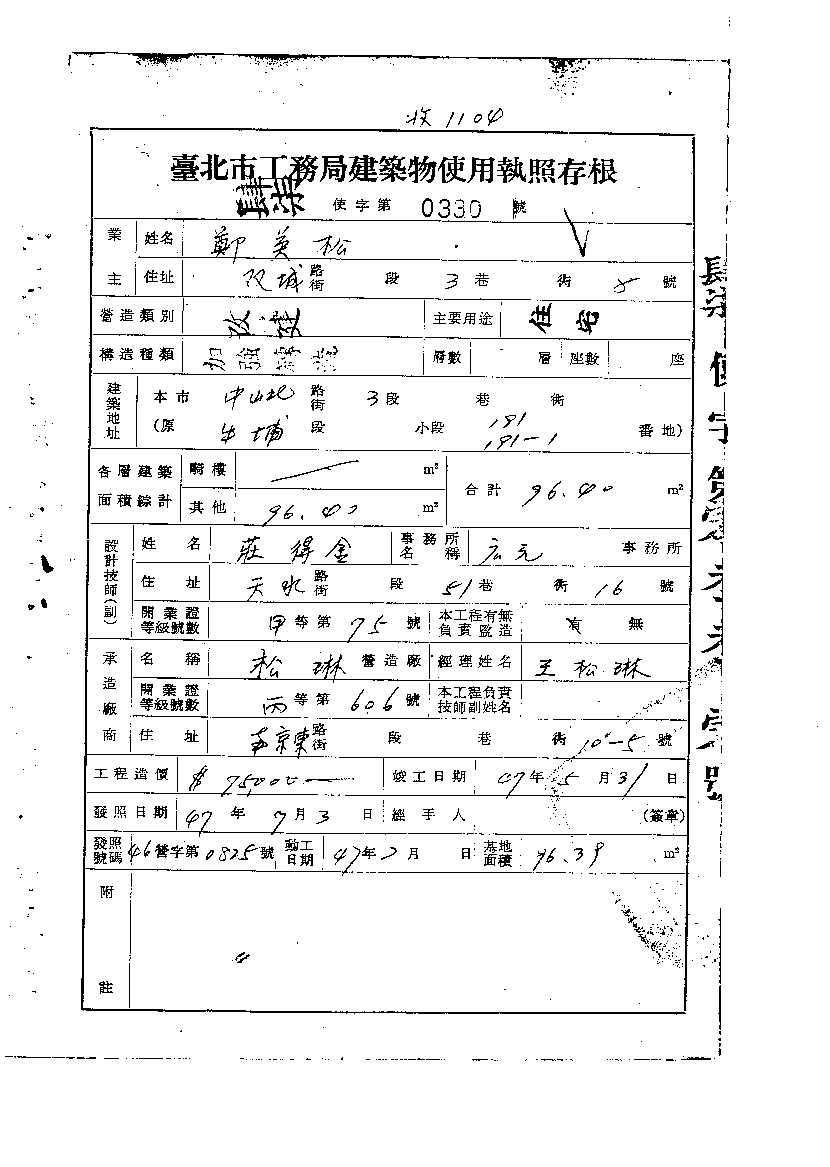 收1104
臺北市工務局建築物使用執照存根
肆柒 使字第 0330 號
業主 姓名 鄭英松
住址 路街 段 3巷 衖 8 號
營造類別 改建 主要用途 住宅
構造種類 加強磚造 層數 層 座數 座
建築地址 本市 中山北 路街 3段 巷 衖
(原 牛埔 段 小段 191 191-1 番地)
各層建築面積綜計 騎樓 m² 合計 96.40 m²
其他 96.40 m²
設計技師(副) 姓名 莊得金 事務所名稱 宏元 事務所
住址 天水 路街 段 51巷 衖 16 號
開業證等級號數 甲等第 75 號 本工程有無負責監造 有 無
承造廠商 名稱 松琳 營造廠 經理姓名 王松琳
開業證等級號數 丙等第 606 號 本工程負責技師副姓名
住址 南京東 路街 段 巷 衖 10-5 號
工程造價 $75,000 竣工日期 47年5月31日
發照日期 47年7月3日 經手人 (簽章)
發照號碼 46營字第0825號 動工日期 47年2月 日 基地面積 96.39 m²
附註
肆柒使字第零叁叁零號